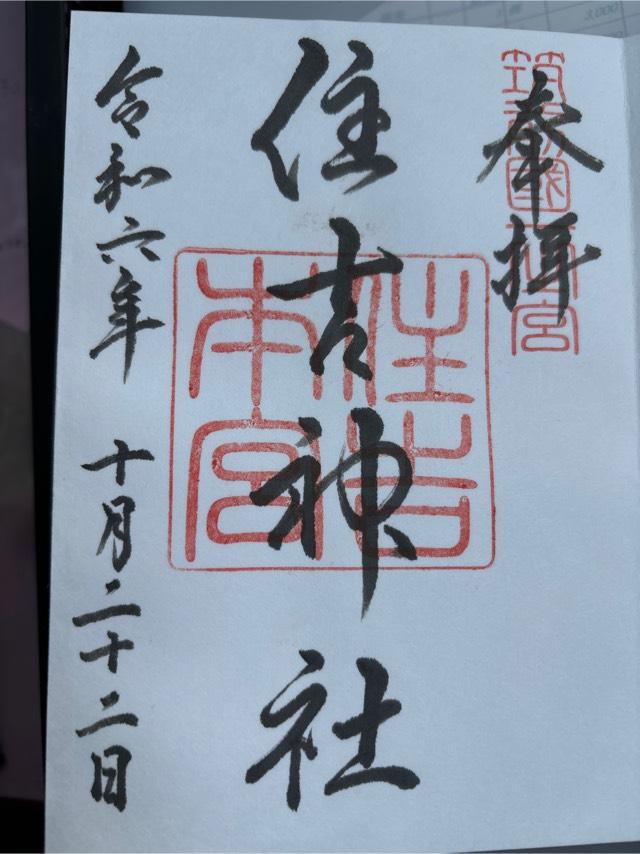 奉拝
筑前國一之宮
住吉神社
住吉本宮
令和六年 十月二十二日